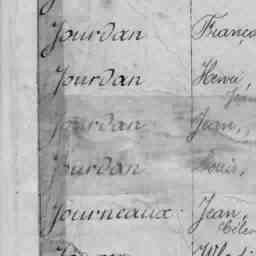 Jourdan Franç
Jourdan Hervé,
Jean
Jourdan Jean,
Jourdan Louis,
Journeaux Jean,